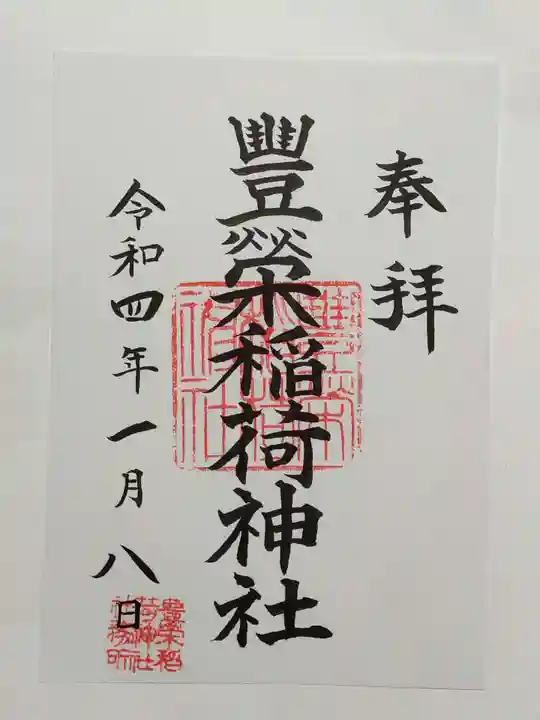 奉拝
豐榮稲荷神社
令和四年一月八日
豊榮稲
荷神社
社務所